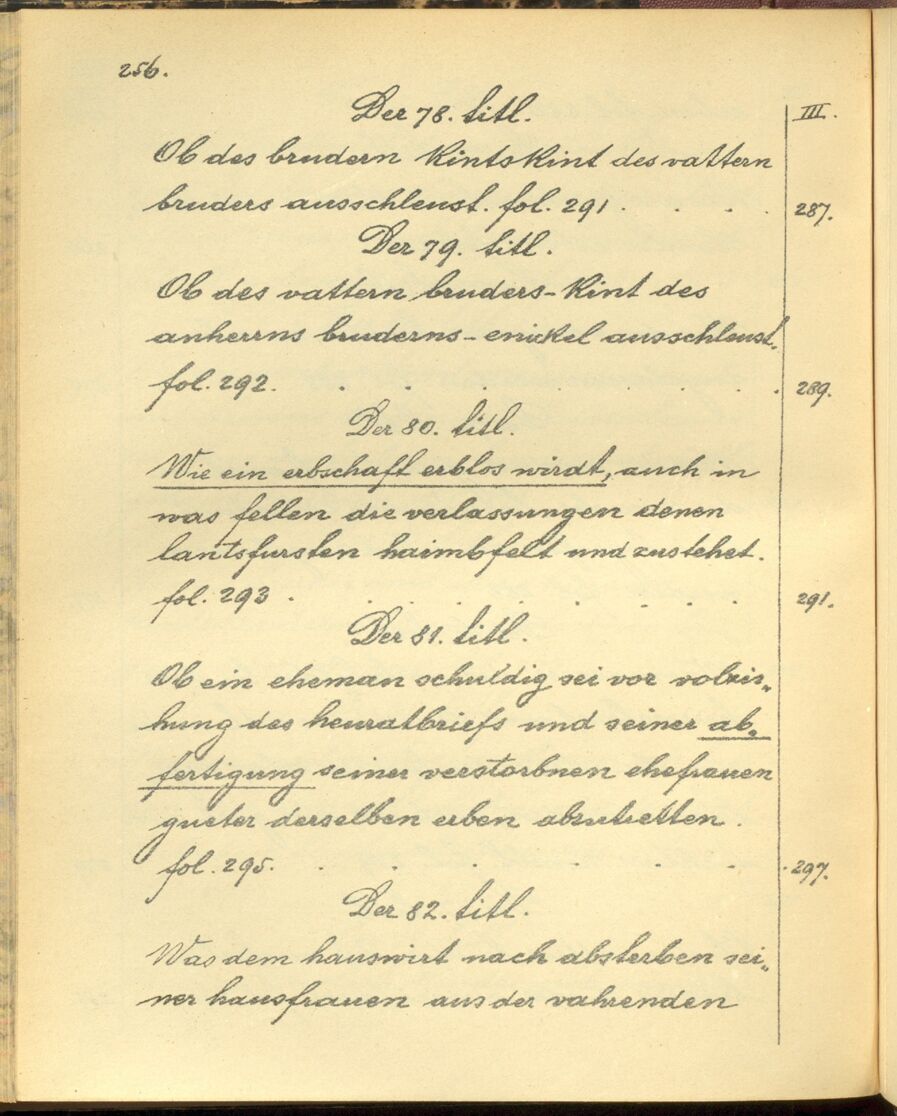 256.
Der 78. titl.
III.
Ob des brudern kintskint des vattern
bruders ausschleust. fol. 291 . . . . 287.
Der 79. titl.
Ob des vattern bruders-kint des
anherrns bruderns-enickel ausschleust.
fol. 292. . . . . . 289.
Der 80. titl.
Wie ein erbschaft erblos wirdt, auch in
was fellen die verlassungen denen
lantsfursten haimbfelt und zustehet.
fol. 293 . . . . . . . . 291.
Der 81. titl.
Ob ein eheman schuldig sei vor volzie„
hung des heuratbriefs und seiner ab„
fertigung seiner verstorbnen ehefrauen
gueter derselben erben abzutretten.
fol. 295. . . . . . . . 297.
Der 82. titl.
Was dem hauswirt nach absterben sei„
ner hausfrauen aus der vahrenden